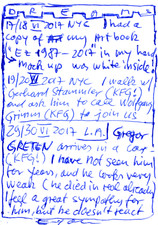 DREAM
17/18 VI 2017 NYC I had a
copy of my Art book
1987–2017 in my hand,
mock up was white inside!
19/20 VI 2017 NYC I walk w/
Gerhard Stammler (KFG!)
and ask him to call Wolfgang
Grimm (KFG) to join us
29/30 VI 2017 L.A. Gregor
GRETEN arrives in a car
(KFG!) I have not seen him
for years, and he looks very
weak (he died in real already)
I feel a great sympathy for
him, but he doesn't react